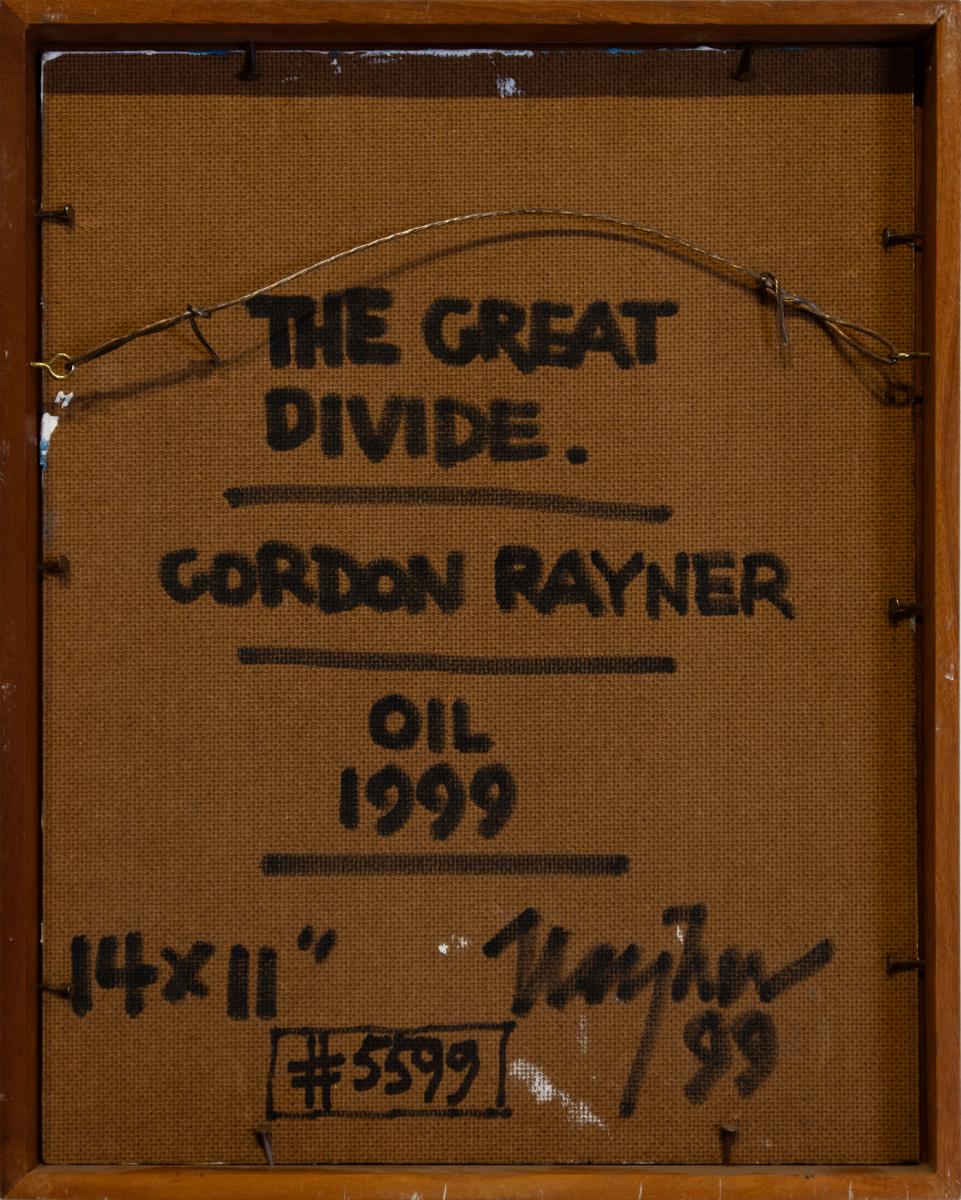 THE GREAT
DIVIDE.
GORDON RAYNER
OIL
1999
14 x 11"
Rayner
99
#5599